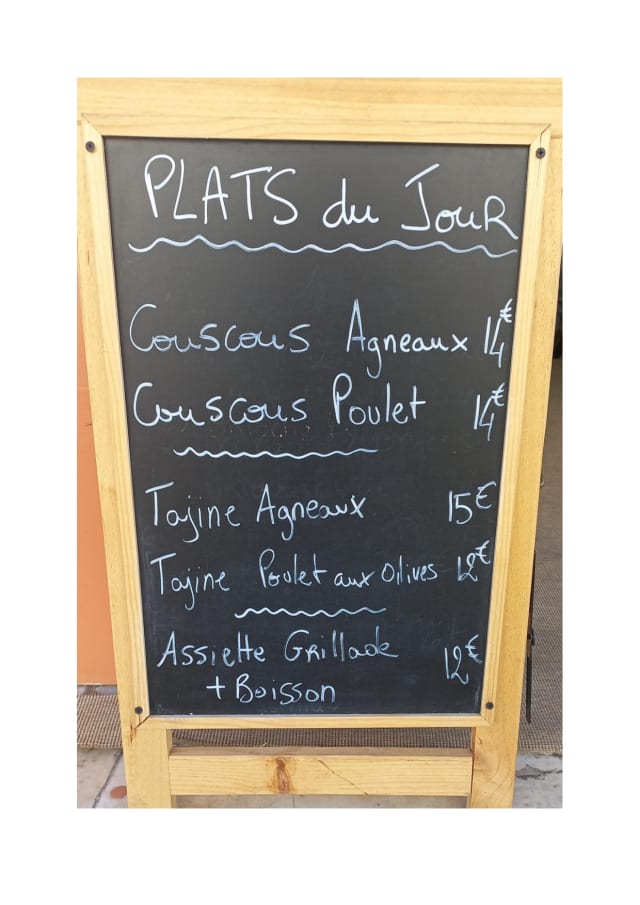 PLATS du JouR
Couscous Agneaux 14€
Couscous Poulet 14€
Tajine Agneaux 15€
Tajine Poulet aux Olives 12€
Assiette Grillade 12€
+ Boisson